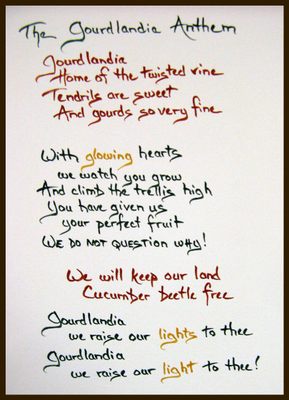 The Gourdlandia Anthem
Gourdlandia
Home of the twisted vine
Tendrils are sweet
And gourds so very fine
With glowing hearts
we watch you grow
And climb the trellis high
You have given us
your perfect fruit
WE DO NOT QUESTION WHY!
We will keep our land
Cucumber beetle free
Gourdlandia
we raise our lights to thee
Gourdlandia
we raise our light to thee!